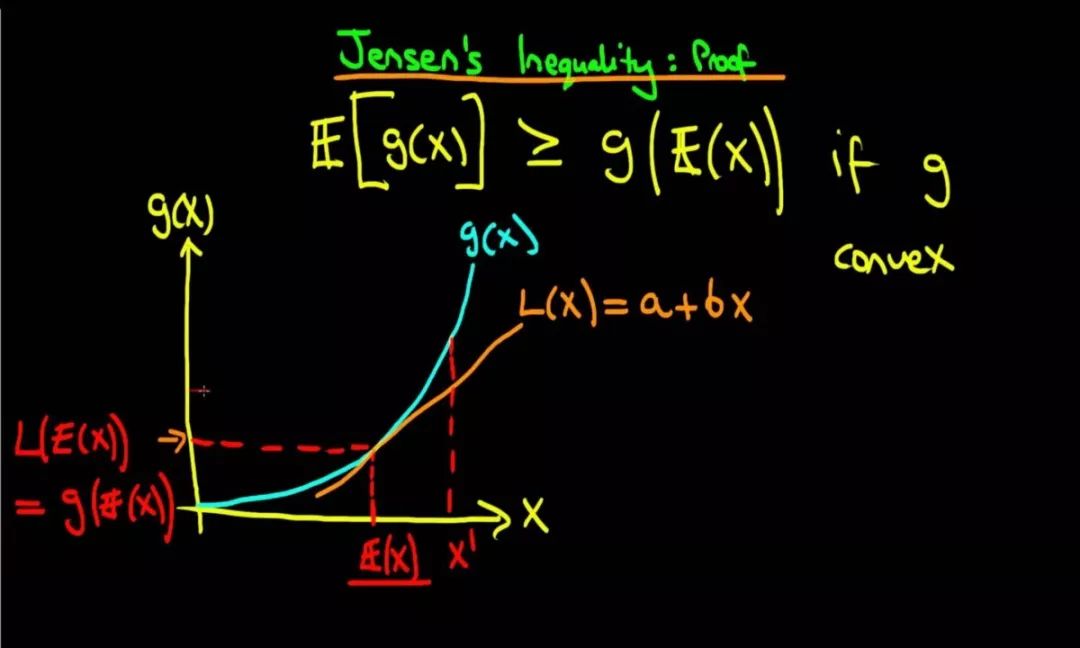 Jensen's Inequality: Proof
𝔼[g(x)] ≥ g(𝔼(x)) if g
convex
g(x)
g(x)
L(x) = a + bx
L(E(x))
= g(𝔼(x))
x
𝔼(x) x'